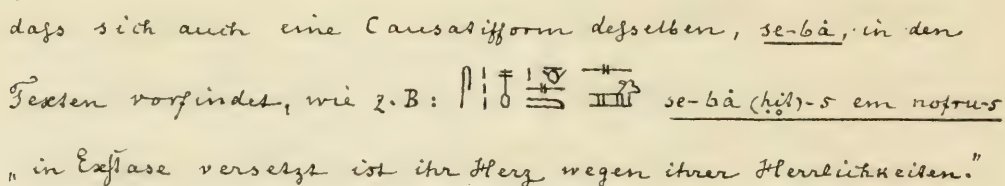 daſs sich auch eine Causatifform deſselben, se-bȧ, in den
Texten vorfindet, wie z. B: se-bȧ (ḥịt)-s em nofru-s
„in Exſtase versetzt ist ihr Herz wegen ihrer Herrlichkeiten."